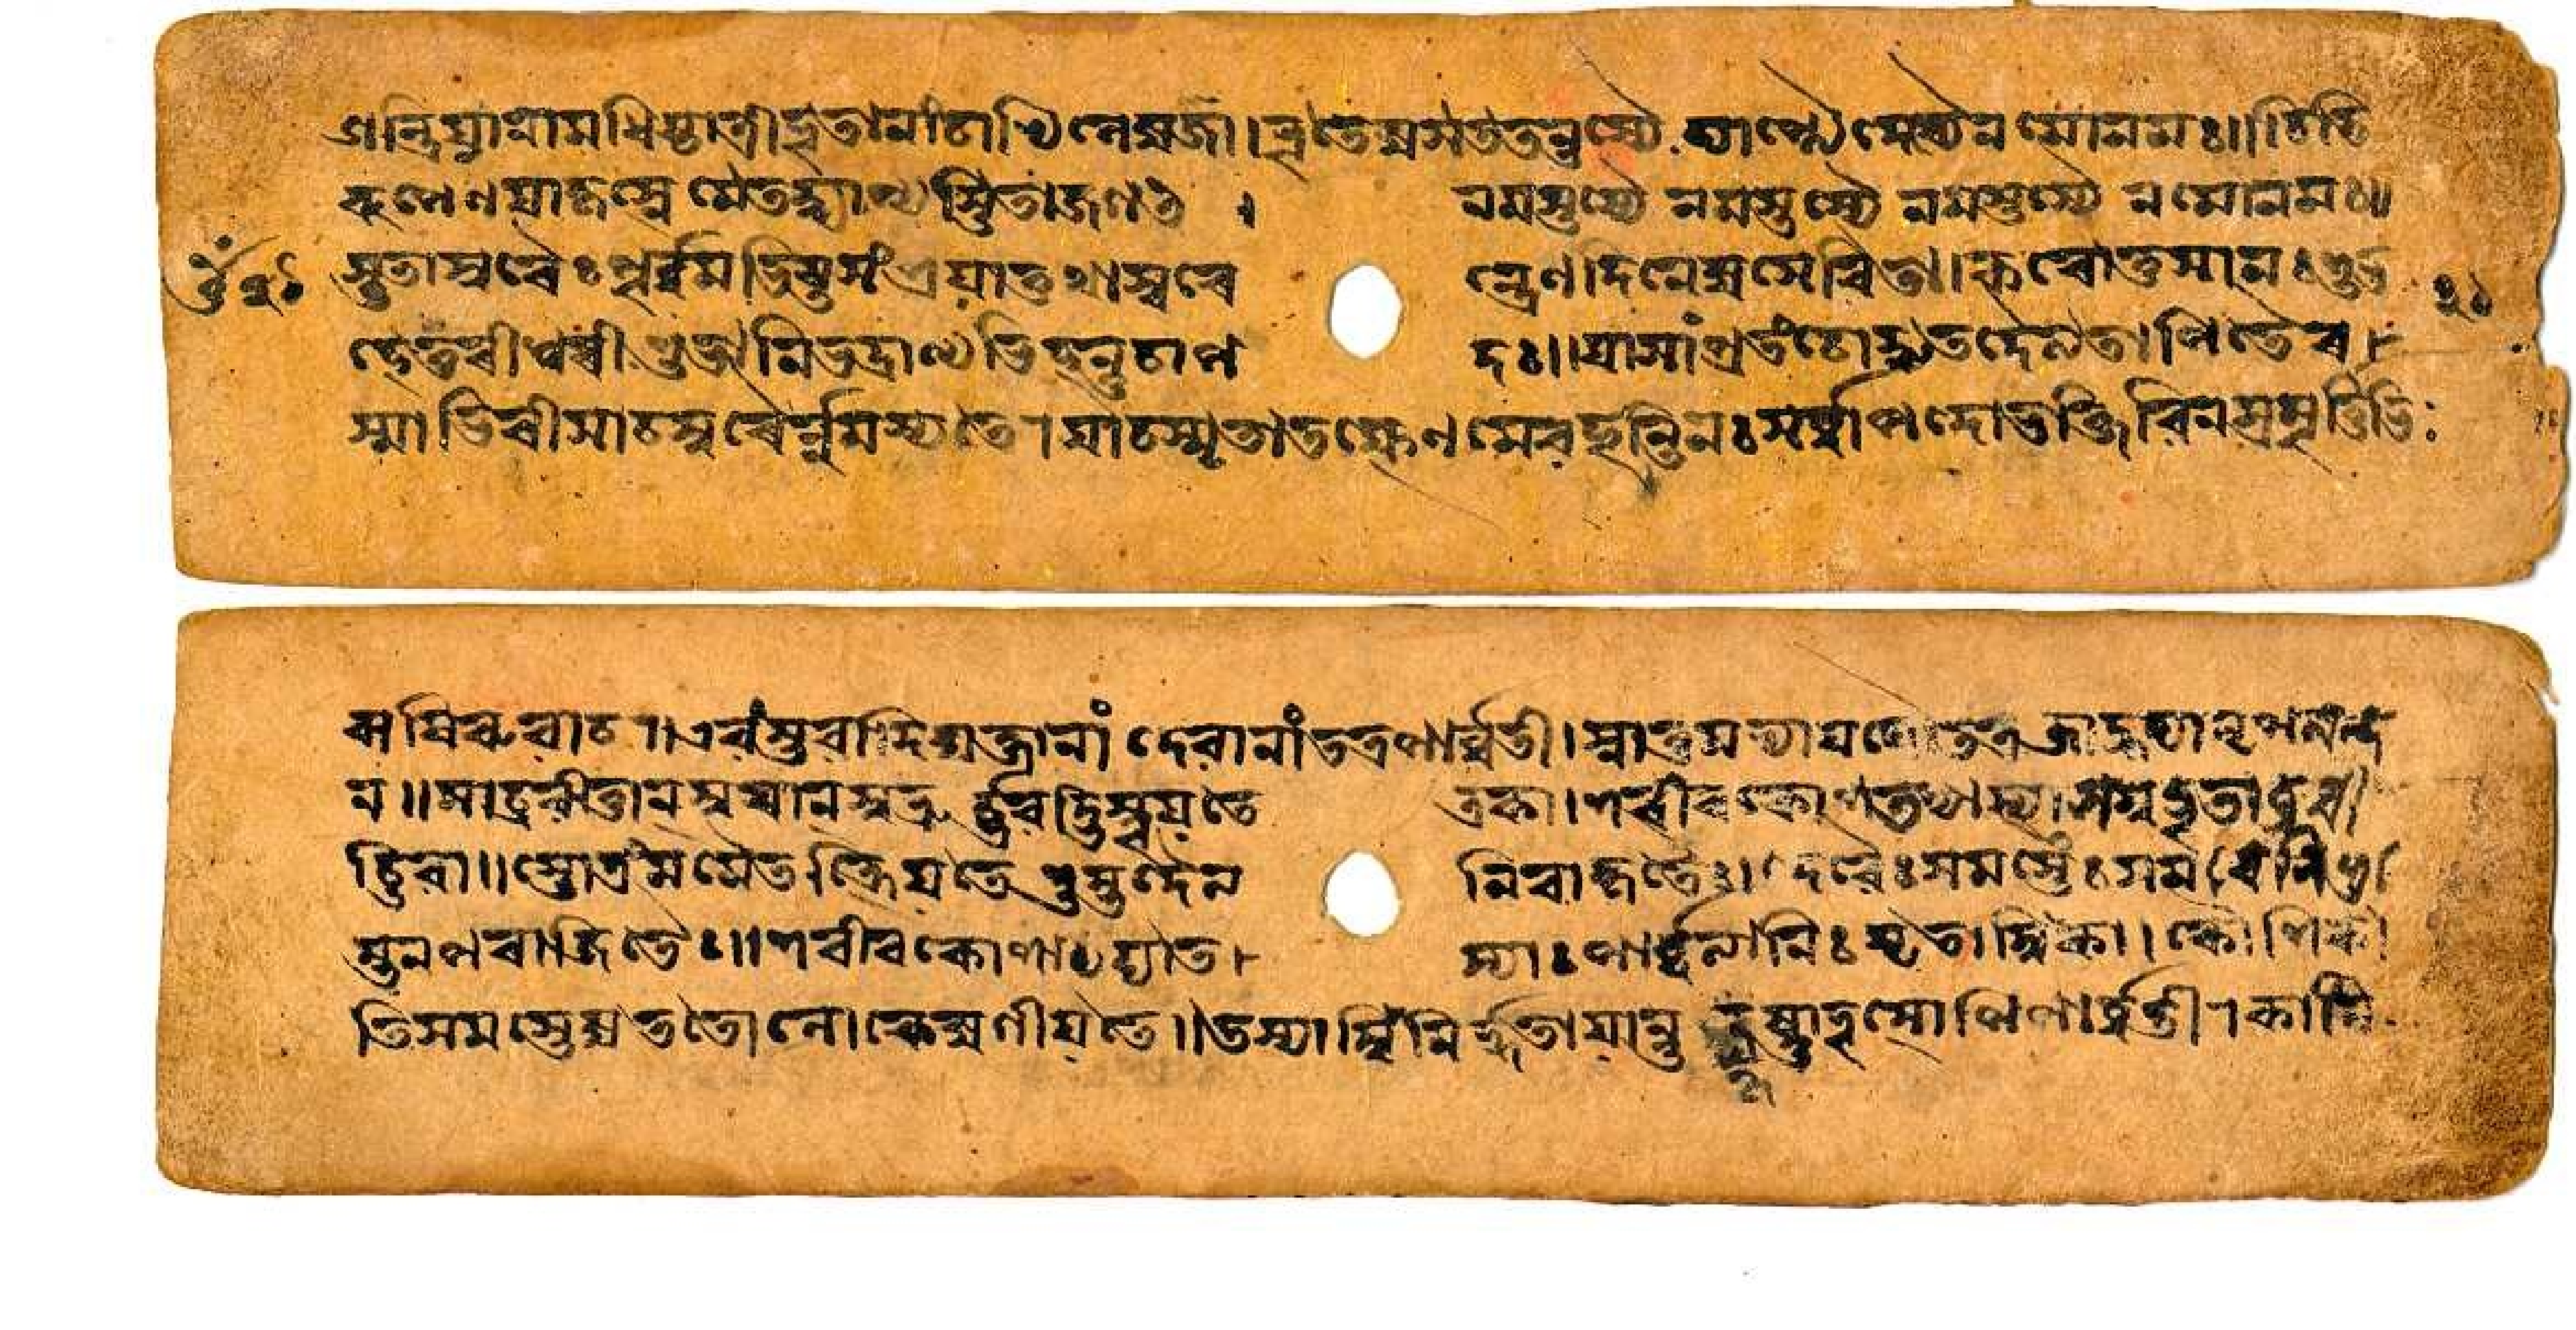 ইন্দ্রিয়াণামধিষ্ঠাত্রী ভূতানাং চাখিলেষু যা। ভূতেষু সততং তস্যৈ ব্যাপ্ত্যৈ দেব্যৈ নমো নমঃ॥ চিতি
রূপেণ যা কৃৎস্নমেতদ্ব্যাপ্য স্থিতা জগৎ । নমস্তস্যৈ নমস্তস্যৈ নমস্তস্যৈ নমো নমঃ॥
স্তুতা সুরৈঃ পূর্ব্বমভিষ্টসংশ্রয়াত্তথা সুরেন্দ্রেণ দিনেষু সেবিতা। করোতু সা নঃ শুভ
হেতুরীশ্বরী শুভানি ভদ্রাণ্যভিহন্তু চাপদঃ॥ যা সাংপ্রতং চোদ্ধতদৈত্যতাপিতৈর
স্মাভিরীশা চ সুরৈর্নমস্যতে। যা চ স্মৃতা তৎক্ষণমেব হন্তি নঃ সর্ব্বাপদো ভক্তিবিনম্রমূর্ত্তিভিঃ
ঋষিরুবাচ। এবং স্তবাদিযুক্তানাং দেবানাং তত্র পার্ব্বতী। স্নাতুমভ্যাযযৌ তোয়ে জাহ্নব্যা নৃপনন্দ
ন॥ সাব্রবীত্তান্ সুরান্ সুভ্রূর্ভবদ্ভিঃ স্তূয়তে ত্রকা। শরীরকোষতশ্চাস্যা সমুদ্ভূতাব্রবী
চ্ছিবা॥ স্তোত্রং মমৈতৎক্রিয়তে শুম্ভদৈত্যনিরাকৃতৈঃ। দেবৈঃ সমস্তৈঃ সমরে নিশু
ম্ভেন পরাজিতৈঃ॥ শরীরকোষাদ্যত্তস্যাঃ পার্ব্বত্যা নিঃসৃতাম্বিকা। কৌষিকী
তি সমস্তেষু ততো লোকেষু গীয়তে॥ তস্যাম্বিনির্গতায়ান্তু কৃষ্ণাভূৎসাপি পার্ব্বতী। কালি